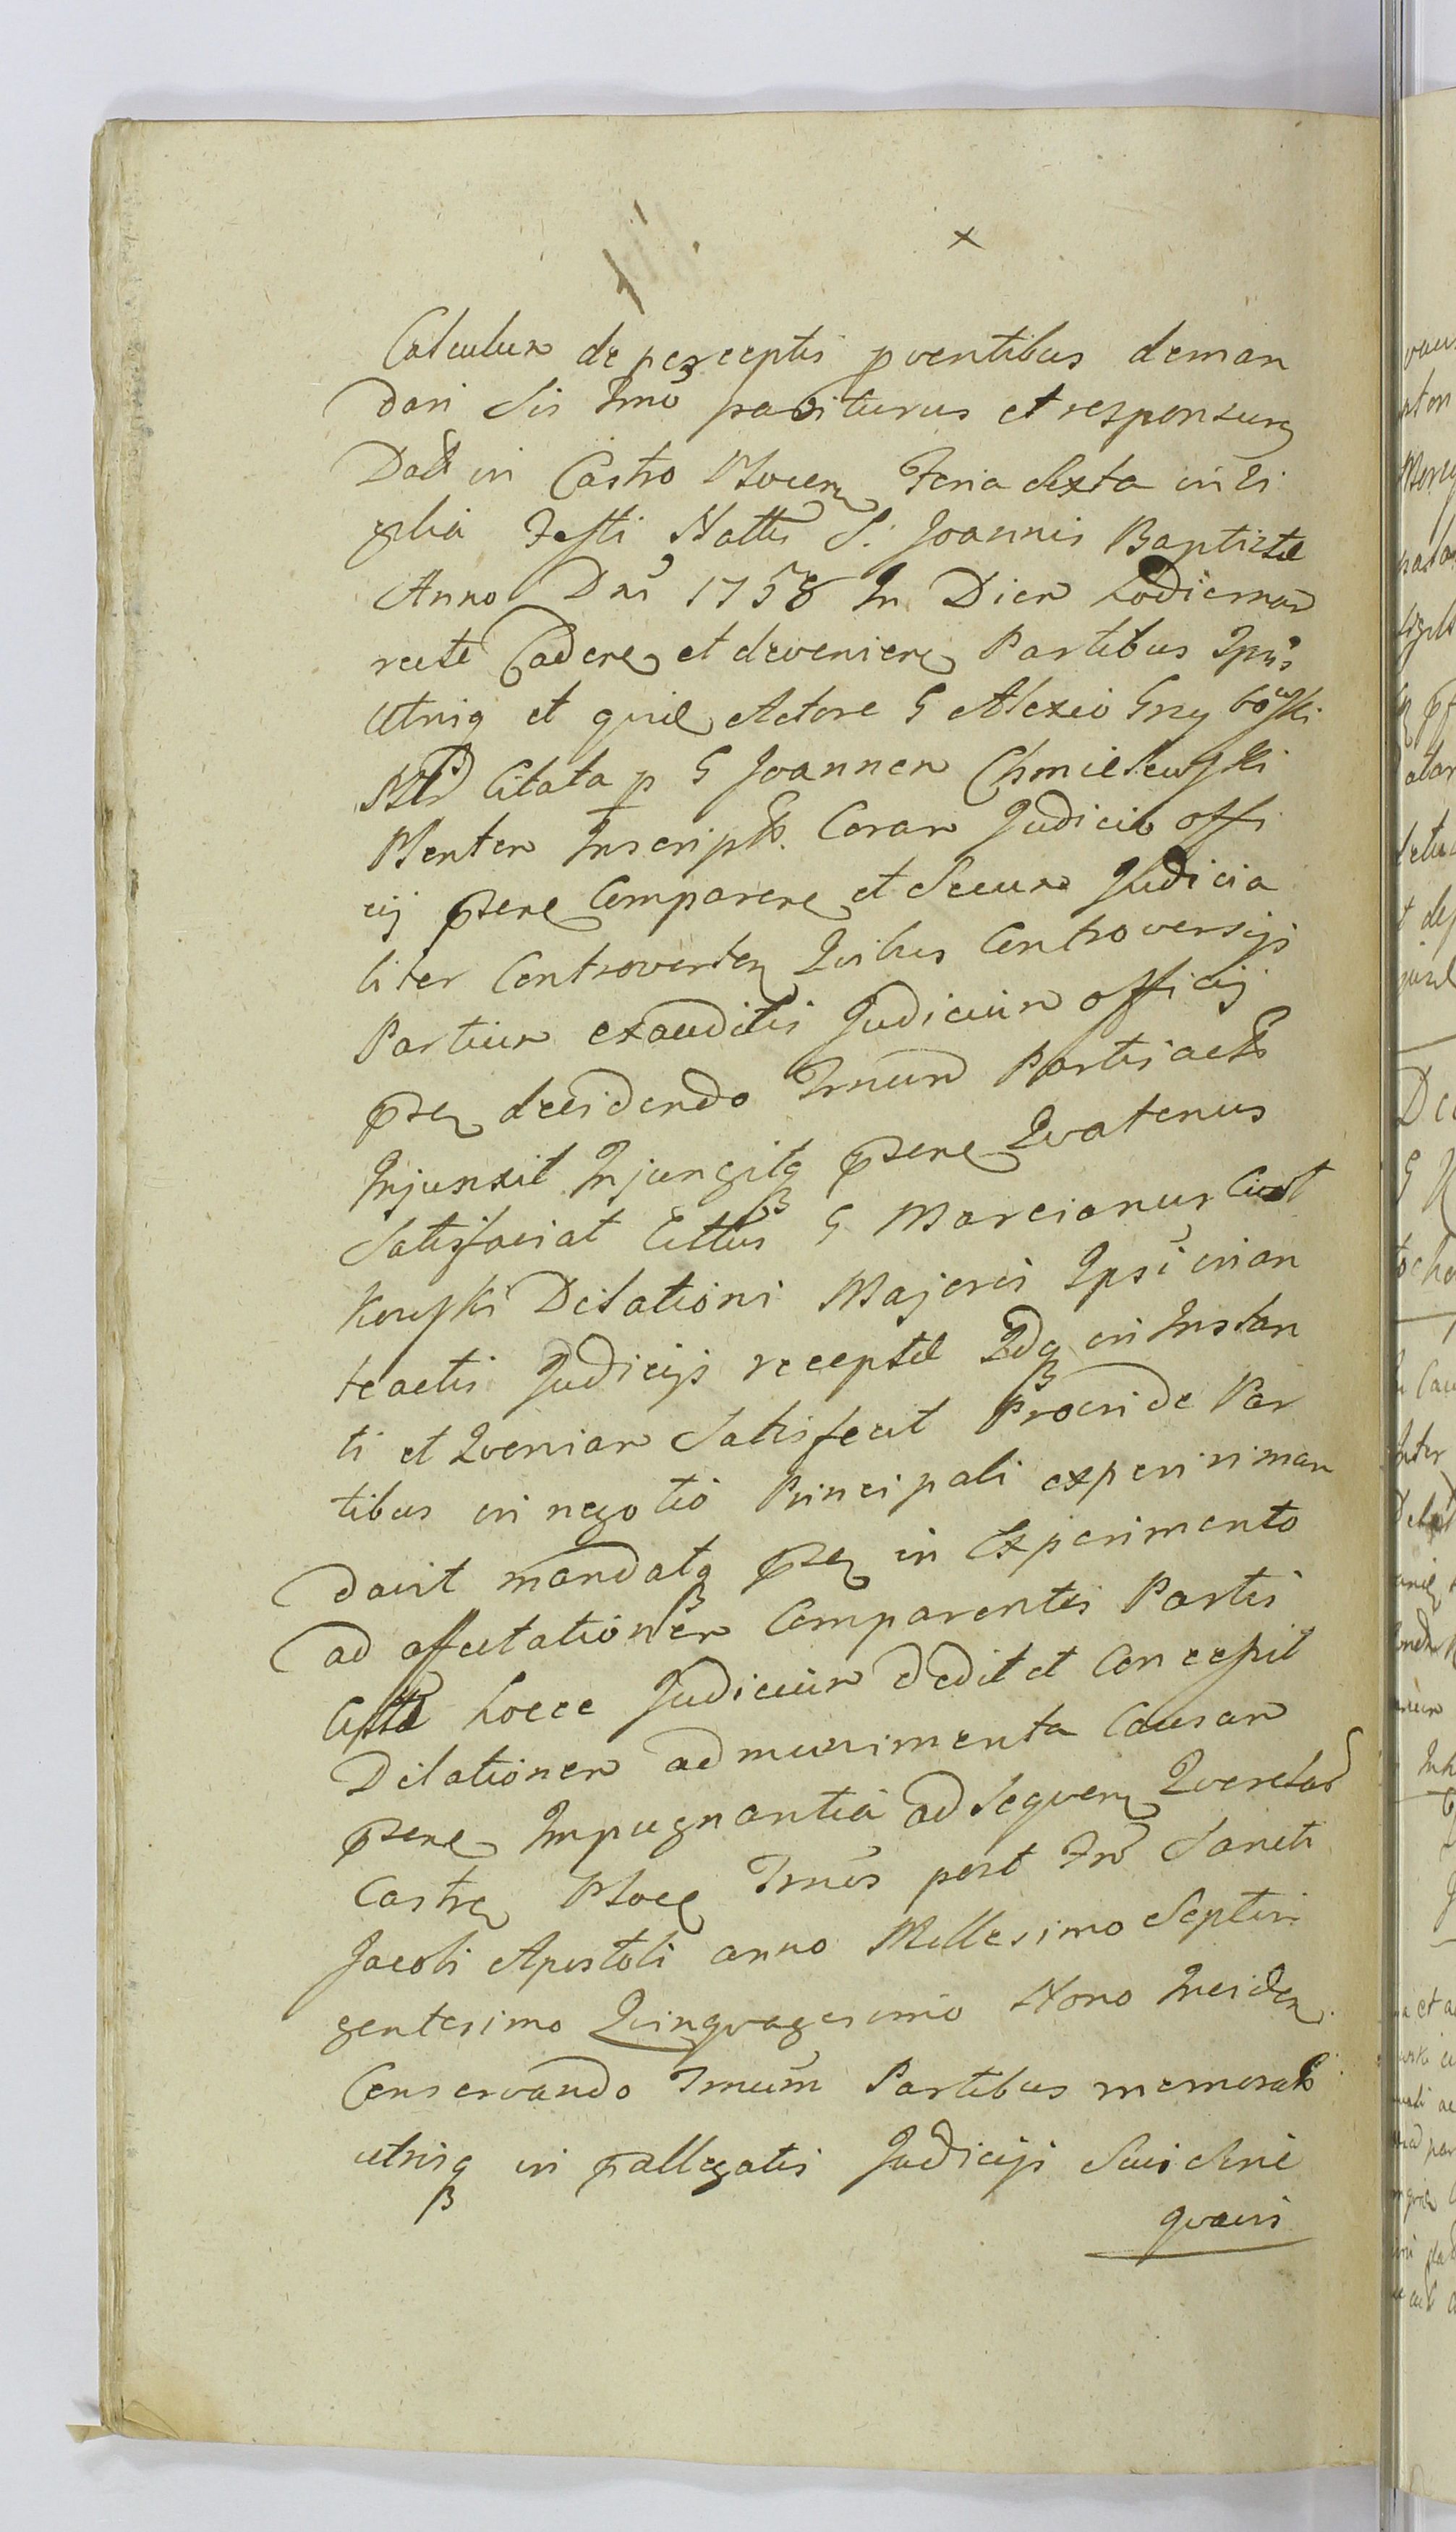 x
Calculum de perceptis pventibus deman
dari sis Tmô pariturus et responsurq
Datt in Castro Plocen Feria Sexta in Vi
gilia Festi Nattis S. Joannis Baptistæ
Anno Dni 1758 In Diem hodiernam
recte Cadere et devenien Partibus Ipsis
Utrisq et quidem Actore G Alexio Grzybowski
Citata p G Joannem Chmielewski
Plenten Inscript. Coram Judicio offi
cij psene Comparen et Secum Judicia
liter Controverten Quibus Controversijs
Partium exauditis Judicium officij
psen decidendo Tmum Partis actt
Injunxit Injungitq psene Quatenus
Satisfaciat Cittus G Marcianus Ciest
kowski Dilationi Majoris Ipsi in an
teactis Judicijs receptæ Qdq in Instan
ti et Quoniam Satisfecit Proinde Par
tibus in negotio Principali experiri man
davit mandatq psen in Experimento
ad affectationem Comparentis Partis
Citta hocce Judicium dedit et Concepit
Dilationem ad munimenta Causam
psene Impugnantia ad Sequen Querelas
Castren Plocen Tmis post Fm Sancti
Jacobi Apostoli anno Millesimo Septin
gentesimo Quinquagesimo Nono Inciden
Conservando Tmum Partibus memoratt
utrisq in pallegatis Judicijs Sui Sine
quavis